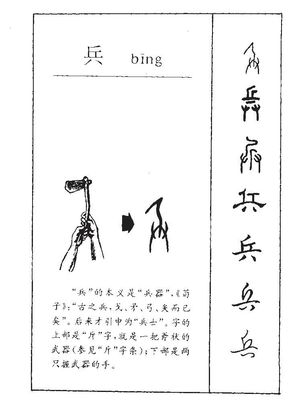 兵 bīng
"兵"的本义是"兵器"。《荀
子》："古之兵，戈、矛、弓、矢而已
矣"。后来才引申为"兵士"。字的
上部是"斤"字，就是一把斧状的
武器（参见"斤"字条）；下部是两
只握武器的手。
兵
兵
兵
兵